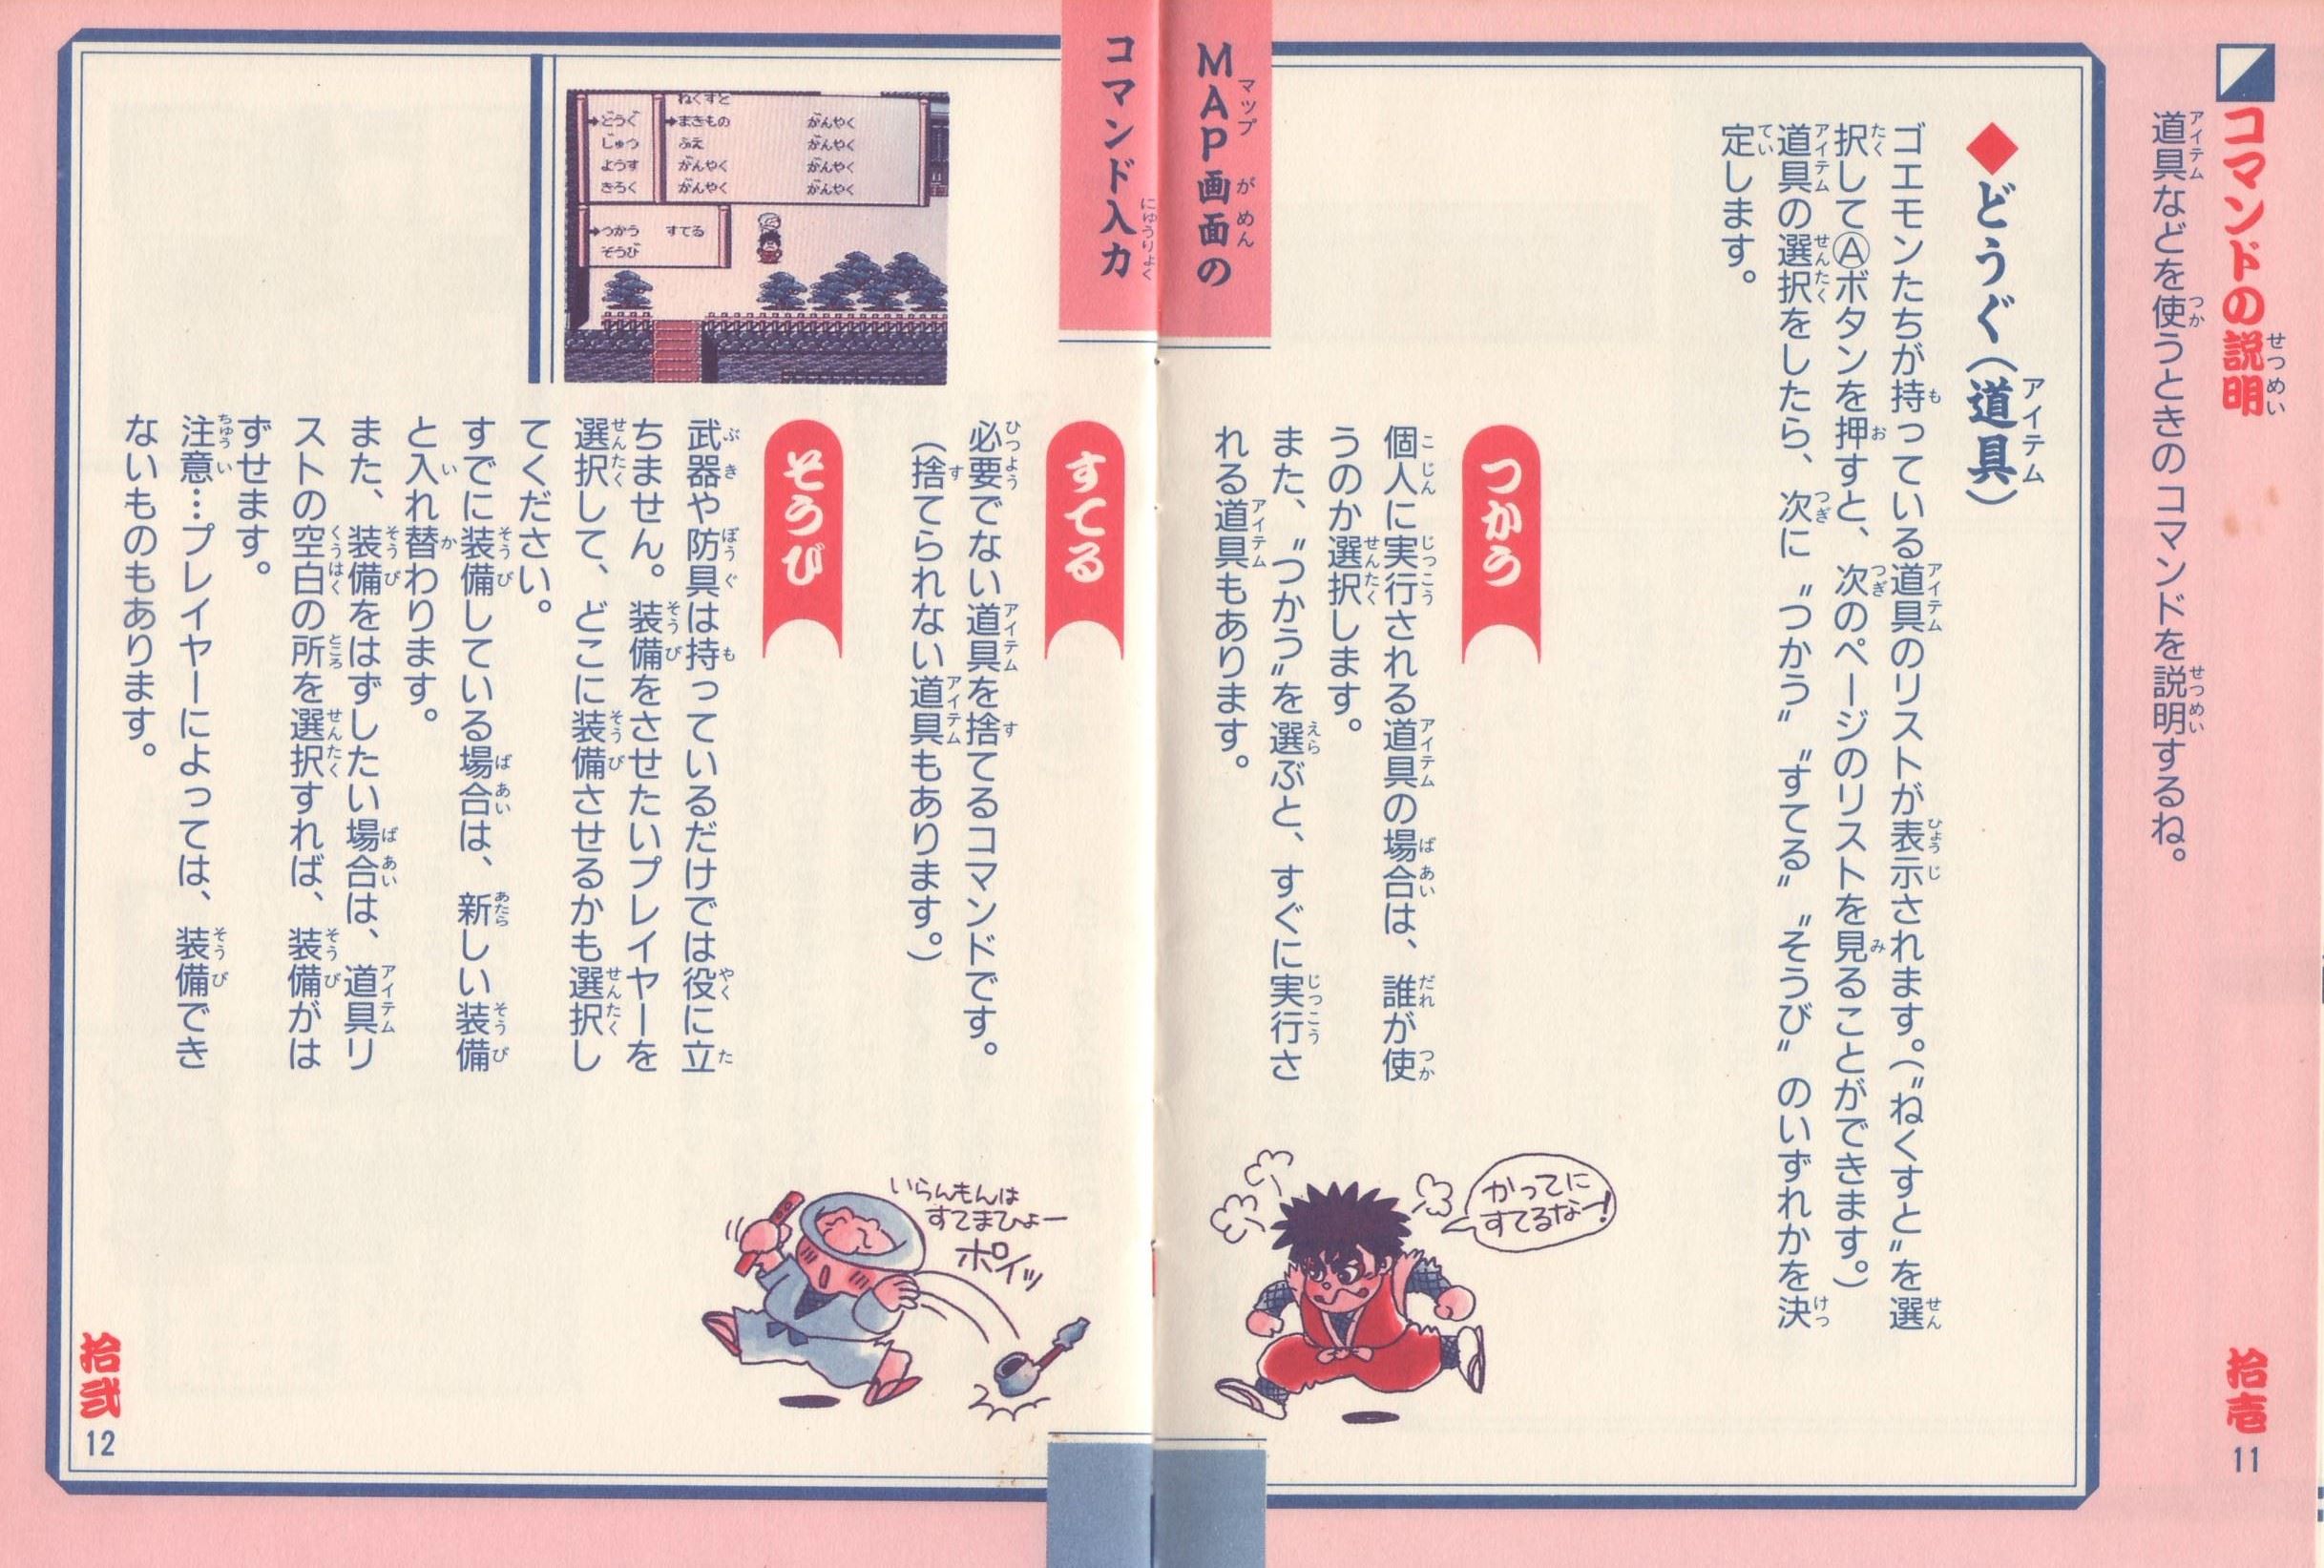 コマンドの説明
道具などを使うときのコマンドを説明するね。
◆どうぐ(道具)
ゴエモンたちが持っている道具のリストが表示されます。(〝ねくすと〟を選
択してⒶボタンを押すと、次のページのリストを見ることができます。)
道具の選択をしたら、次に〝つかう〟〝すてる〟〝そうび〟のいずれかを決
定します。
つかう
個人に実行される道具の場合は、誰が使
うのか選択します。
また、〝つかう〟を選ぶと、すぐに実行さ
れる道具もあります。
かってに
すてるなー!
拾壱
11
MAP画面の
コマンド入力
すてる
必要でない道具を捨てるコマンドです。
(捨てられない道具もあります。)
そうび
武器や防具は持っているだけでは役に立
ちません。装備をさせたいプレイヤーを
選択して、どこに装備させるかも選択し
てください。
すでに装備している場合は、新しい装備
と入れ替わります。
また、装備をはずしたい場合は、道具リ
ストの空白の所を選択すれば、装備がは
ずせます。
注意…プレイヤーによっては、装備でき
ないものもあります。
ねくすと
どうぐ まきもの がんやく
じゅつ ふえ がんやく
ようす がんやく がんやく
きろく がんやく がんやく
つかう すてる
そうび
いらんもんは
すてまひょー
ポイッ
拾弐
12